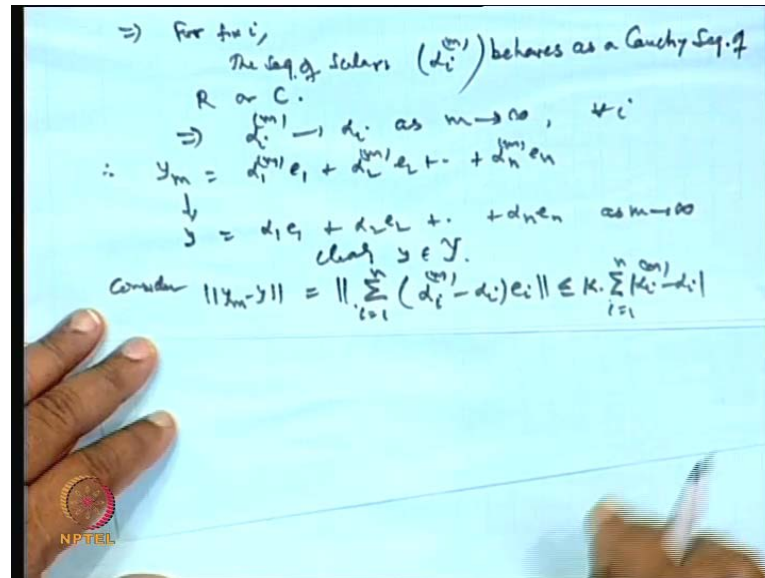 ⇒) For fix i,
The seq. of scalars (α_i^(m)) behaves as a Cauchy Seq. of
R or C.
⇒) α_i^(m) → α_i as m→∞, ∀ i
∴ y_m = α_1^(m) e_1 + α_2^(m) e_2 + · + α_n^(m) e_n
↓
y = α_1 e_1 + α_2 e_2 + · + α_n e_n as m→∞
clear y ∈ Y.
Consider ||y_m - y|| = || Σ_{i=1}^n (α_i^(m) - α_i) e_i || ≤ K. Σ_{i=1}^n |α_i^(m) - α_i|
NPTEL